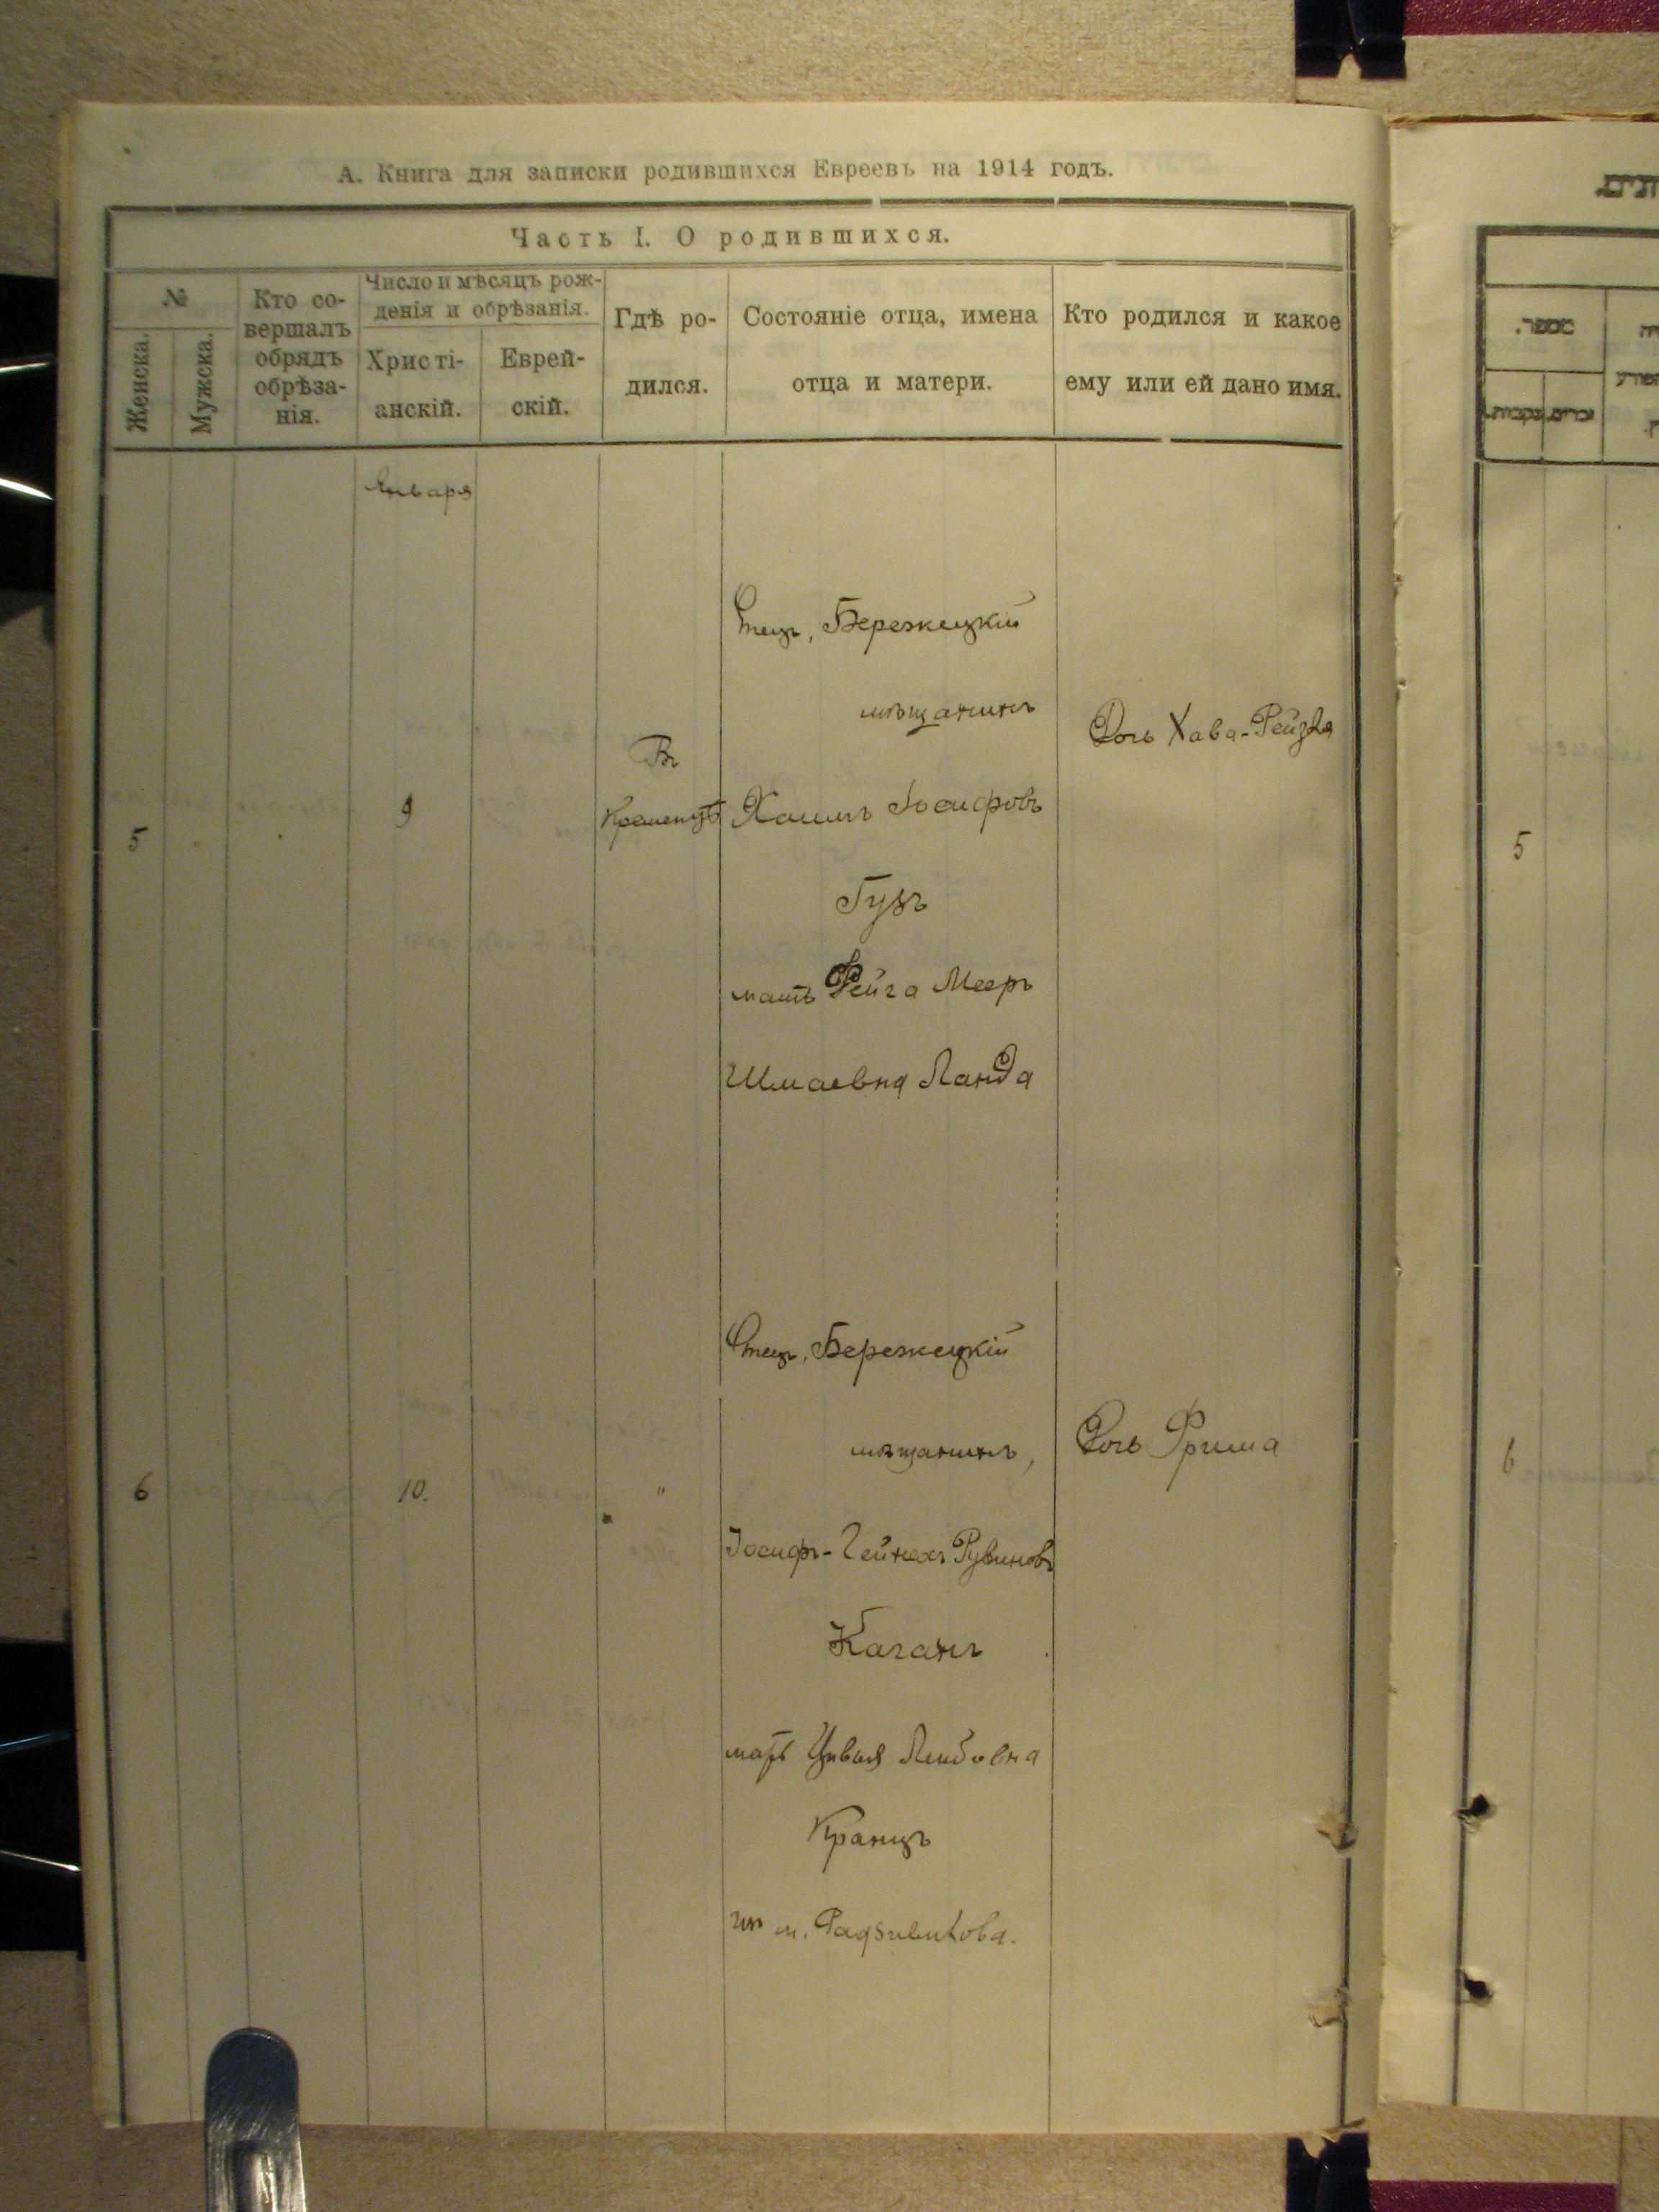 А. Книга для записки родившихся Евреевъ на 1914 годъ.
Часть I. О родившихся.
№
Женска.
Мужска.
Кто со-
вершалъ
обрядъ
обрѣза-
нія.
Число и мѣсяцъ рож-
денія и обрѣзанія.
Христі-
анскій.
Еврей-
скій.
Гдѣ ро-
дился.
Состояніе отца, имена
отца и матери.
Кто родился и какое
ему или ей дано имя.
Января
5
9
Въ
Кременцѣ
Отецъ, Бережецкій
мѣщанинъ
Хаимъ Іосифовъ
Гузъ
мать Фейга Мееръ
Шмаевна Ланда
Дочь Хава-Рейзя
6
10.
"
Отецъ, Бережецкій
мѣщанинъ,
Іосифъ-Гейнехъ Рувиновъ
Каганъ
мать Цивья Лейбовна
Кранцъ
изъ м. Радзивилова.
Дочь Фрима
מספר.
זכרים
נקבות.
5
6